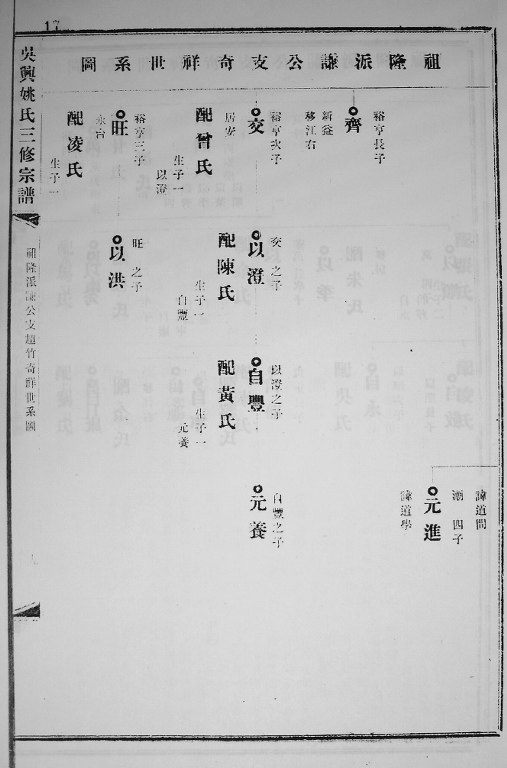 17
祖隆派謙公支奇祥世系圖
諱道問
潮四子
元進
諱道學
裕亨長子
齊
新益
移江右
裕亨次子
交
居安
配曾氏
生子一
以澄
裕亨三子
旺
永台
配凌氏
生子一
交之子
以澄
配陳氏
生子一
自豐
旺之子
以洪
以澄之子
自豐
配黃氏
生子一
元養
自豐之子
元養
吳興姚氏三修宗譜
祖隆派謙公支超竹奇祥世系圖